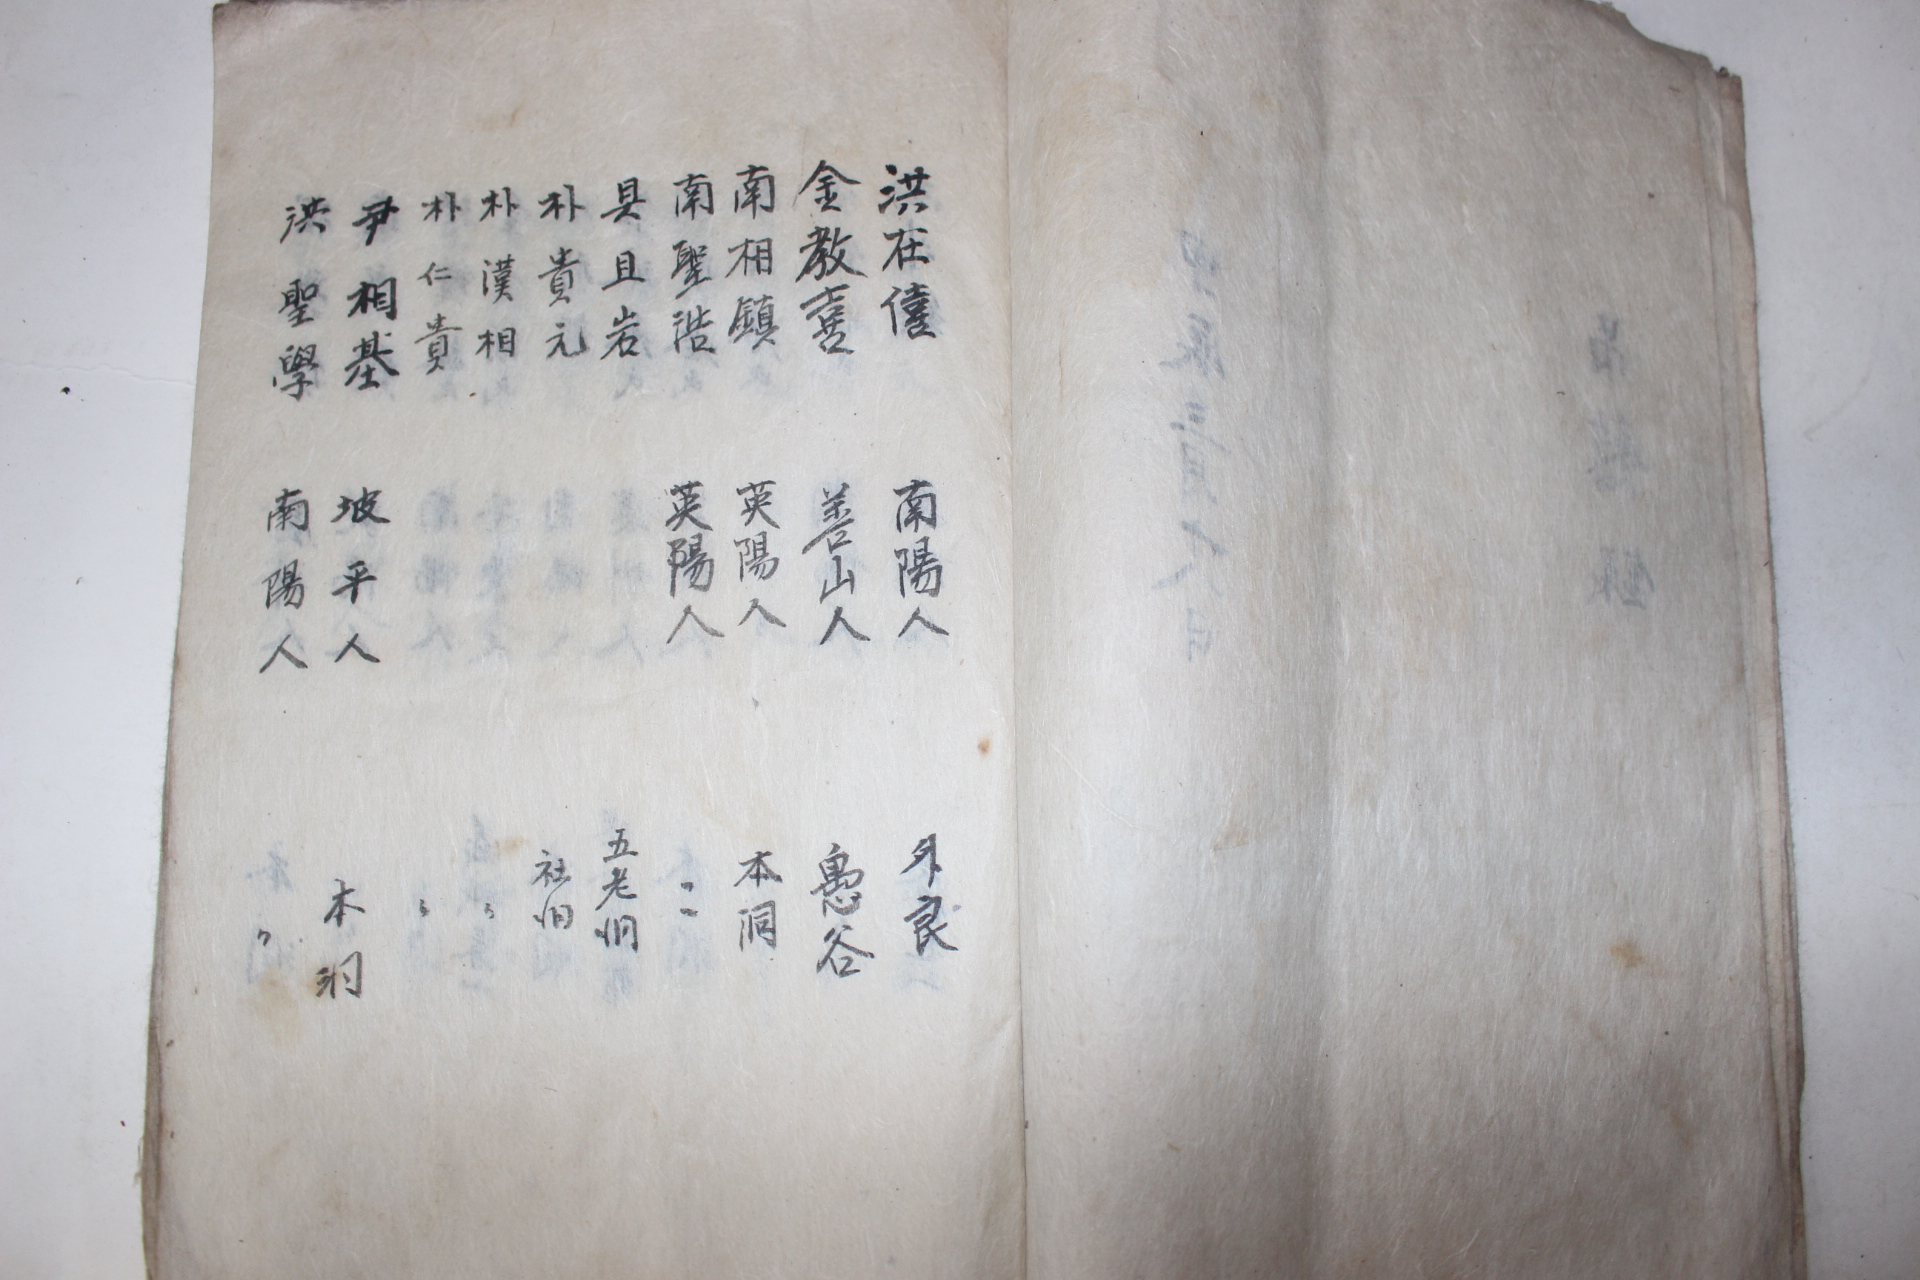 洪在僖 南陽人 外良
金教喜 善山人 愚谷
南相鎮 英陽人 本洞
南聖浩 英陽人 〃
具且岩 五老洞
朴貴元 社洞
朴漢相 〃
朴仁貴 〃
尹相基 坡平人 本洞
洪聖學 南陽人 〃